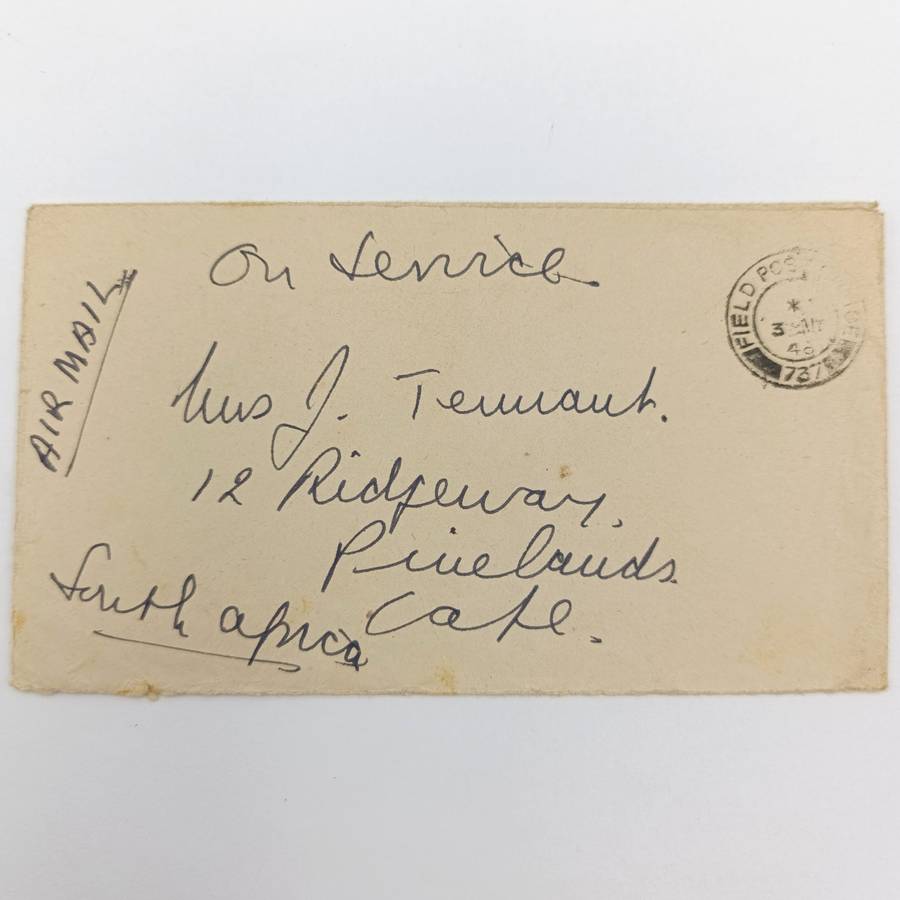 On Service.
AIR MAIL
FIELD POST OFFICE
48
737
Mrs J. Tennant.
12 Ridgeway,
Pinelands
Cape.
South Africa